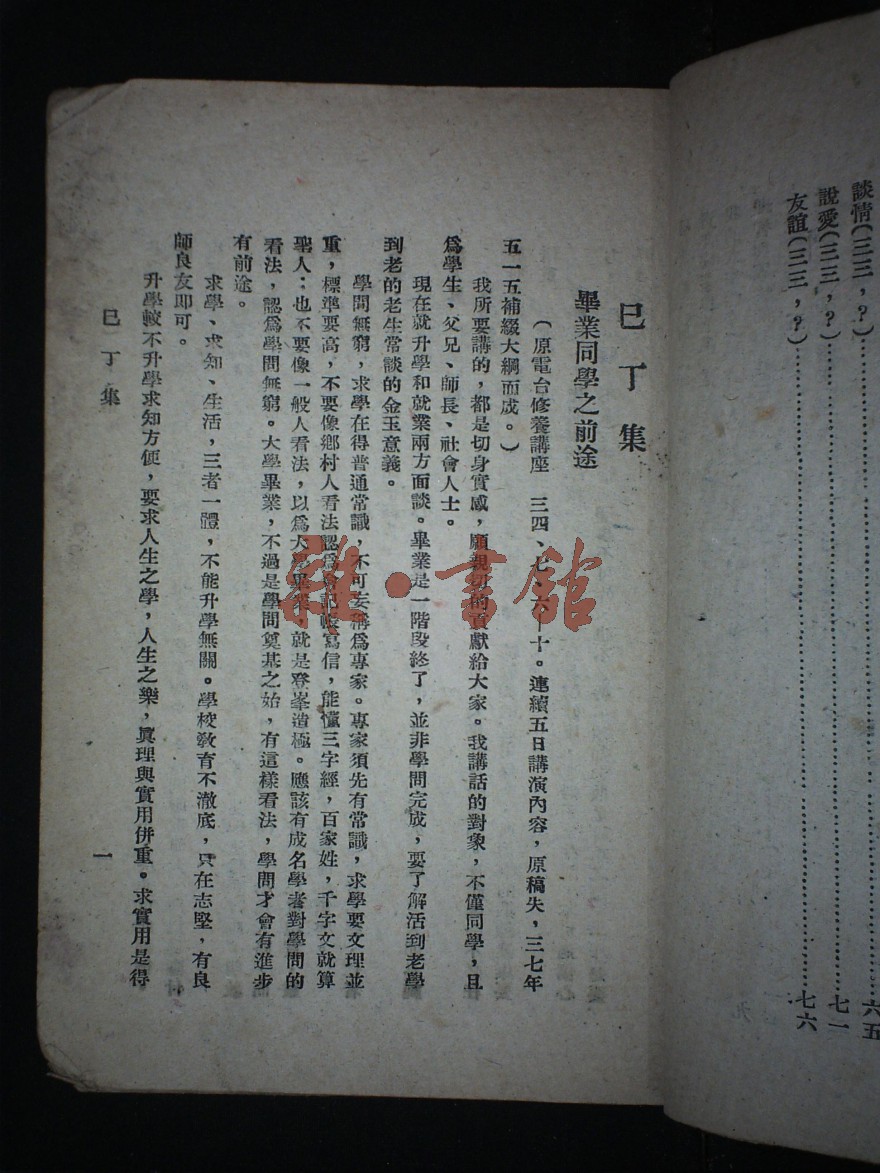 談情(三三，?)……………………六五
說愛(三三，?)……………………七一
友誼(三三，?)……………………七六
巳丁集
畢業同學之前途
(原電台修養講座　三四、七、六—十。連續五日講演內容，原稿失，三七年
五一五補綴大綱而成。)
我所要講的，都是切身實感，願親切的貢獻給大家。我講話的對象，不僅同學，且
爲學生、父兄、師長、社會人士。
現在就升學和就業兩方面談。畢業是一階段終了，並非學問完成，要了解活到老學
到老的老生常談的金玉意義。
學問無窮，求學在得普通常識，不可妄稱爲專家。專家須先有常識，求學要文理並
重，標準要高，不要像鄉村人看法認爲會記帳寫信，能懂三字經，百家姓，千字文就算
聖人；也不要像一般人看法，以爲大學畢業，就是登峯造極。應該有成名學者對學問的
看法，認爲學問無窮。大學畢業，不過是學問奠基之始，有這樣看法，學問才會有進步
有前途。
求學、求知、生活，三者一體，不能升學無關。學校敎育不澈底，只在志堅，有良
師良友即可。
升學較不升學求知方便，要求人生之學，人生之樂，眞理與實用併重。求實用是得
巳丁集
一
雜·書館